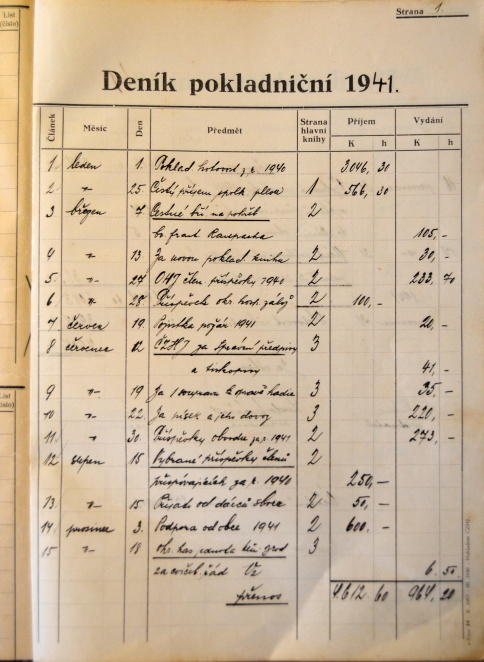 List
(číslo)
Strana 1.
Deník pokladniční 1941.
Článek Měsíc Den Předmět Strana hlavní knihy Příjem Vydání
K h K h
1 leden 1. Poklad. hotovost z r. 1940 3046, 30
2 " 25. Čistý příjem spolk. plesu 1 566, 30
3 březen 7 na pohřeb 2
br. Frant. 105,-
4 " 13 Za novou poklad. knihu 2 30,-
5 " 27 OHJ člen. příspěvky 1940 2 233, 70
6 " 28. Příspěvek okr. hosp. zálož 2 100,-
7 červen 19. Pojistka požár 1941 2 20,-
8 červenec 12 ČZHJ za správní předpisy 3
a tiskopisy 41,-
9 " 19 Za 1 soupravu hadic 3 35,-
10 " 22. Za písek a jeho dovoz 3 220,-
11 " 30. Příspěvky obvodu za r. 1941 2 273,-
12 srpen 15 Vybrané příspěvky členů 2
přispívajících za r. 1940 250,-
13 " 15 Přijato od dárců obce 2 50,-
14 prosinec 3. Podpora od obce 1941 2 600.-
15 " 18 okr. has. jednota 3
za cvičeb. řád 6. 50.
přenos 4.612 60 964, 20
List
(číslo)